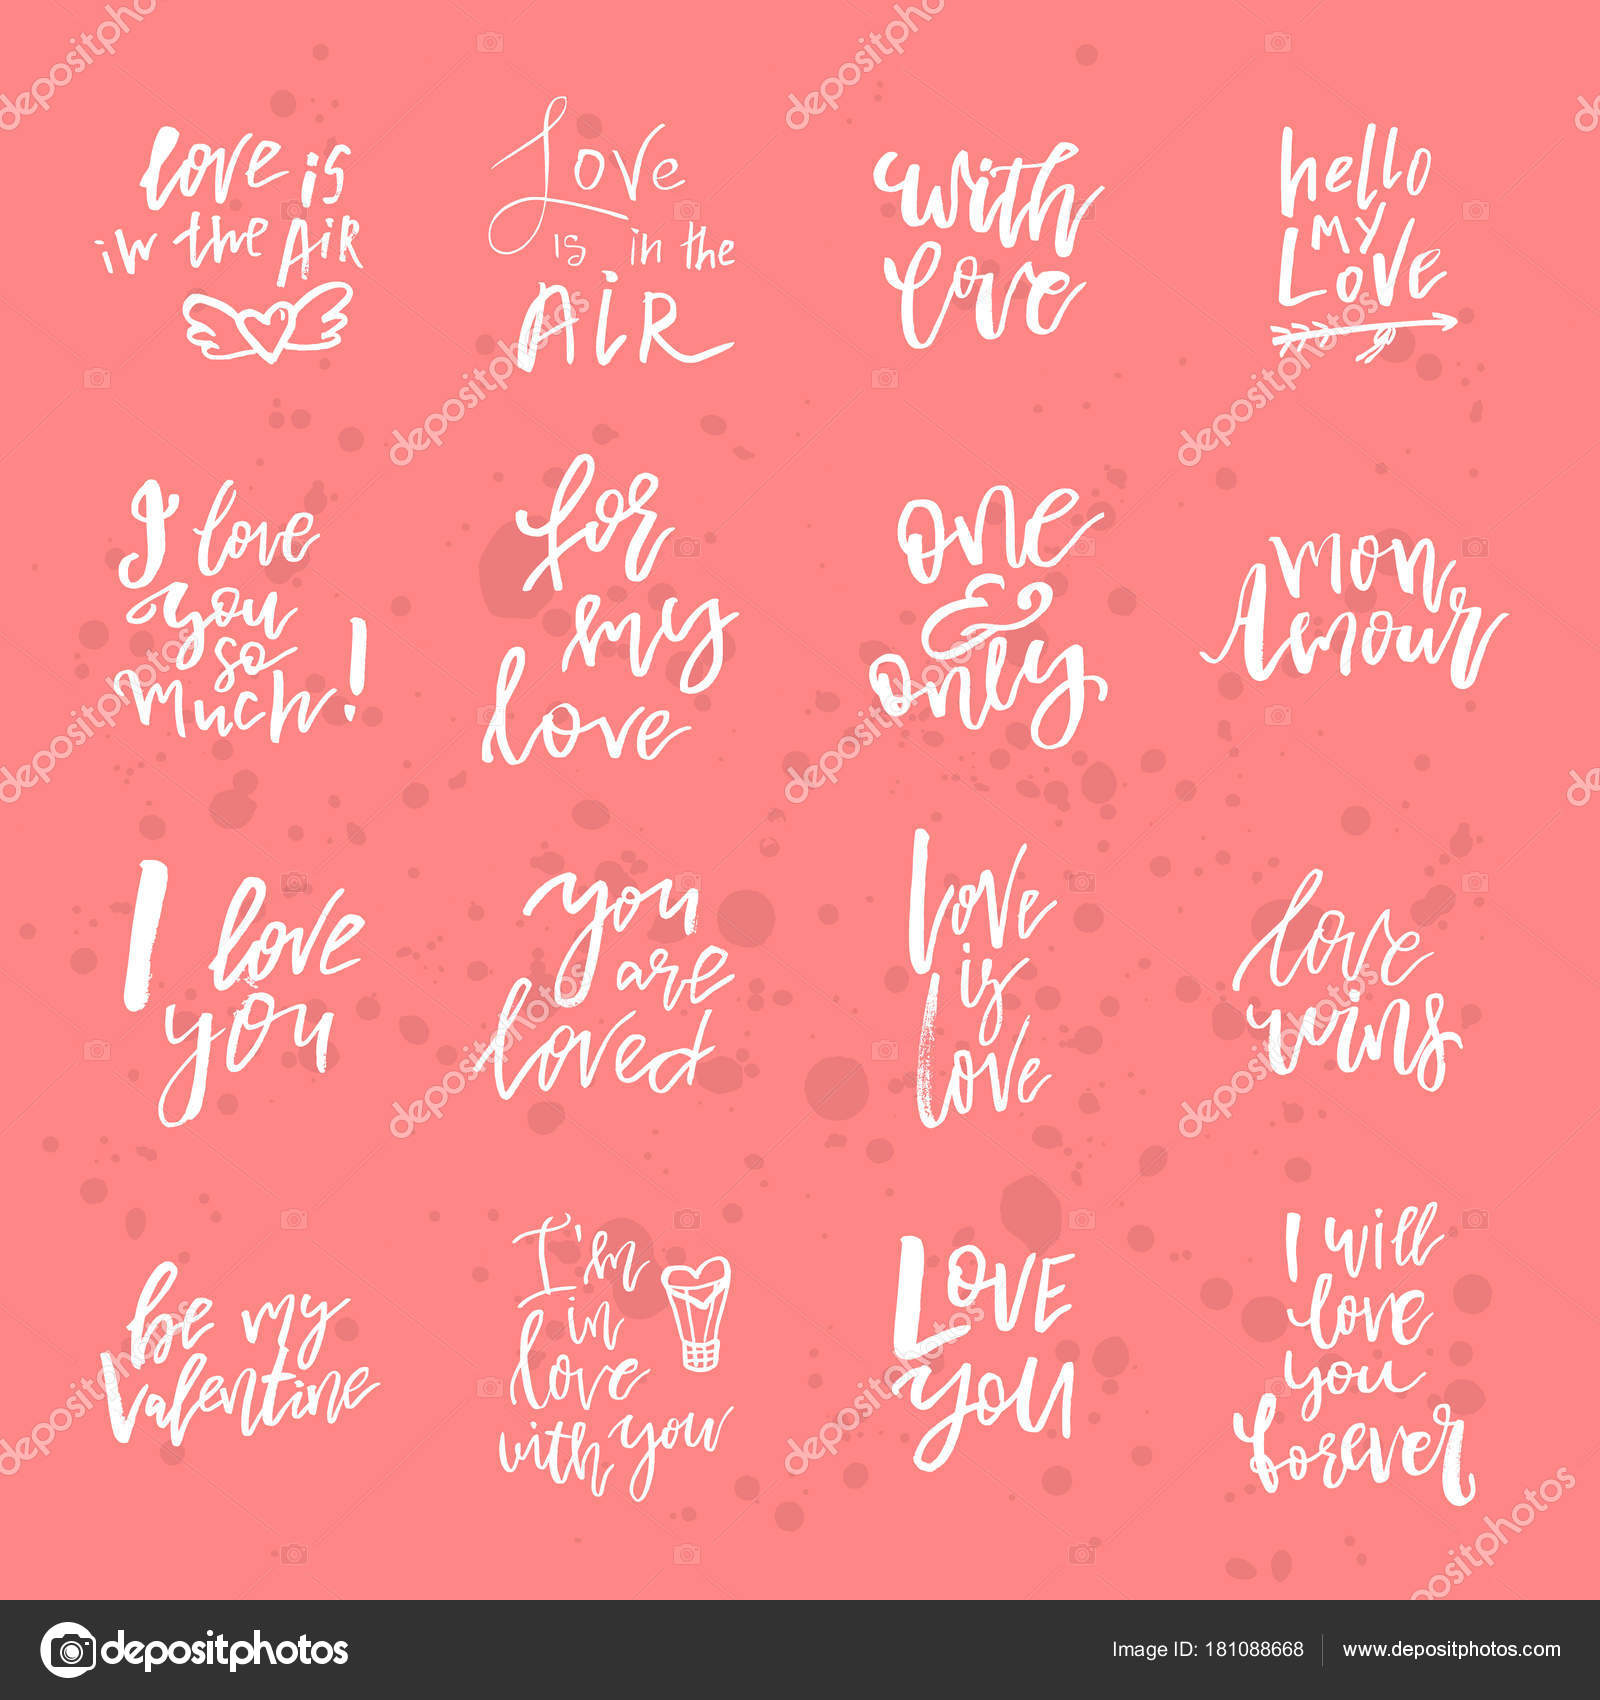 love is
in the AiR
Love
is in the
AiR
with
love
hello
my
Love
I love
you
so
much!
for
my
love
one
&
only
mon
Amour
I love
you
you
are
loved
Love
is
Love
love
wins
be my
Valentine
I'm
in
love
with you
Love
you
I will
love
you
forever
depositphotos
Image ID: 181088668
www.depositphotos.com